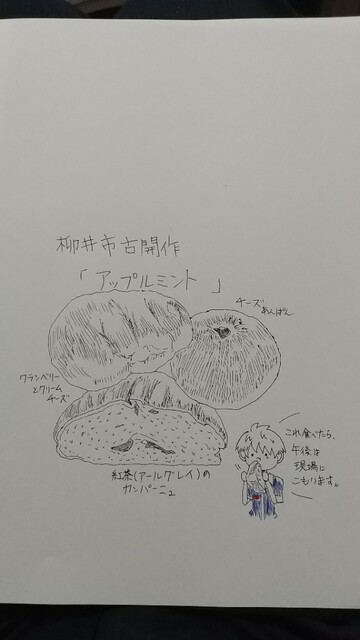 柳井市古開作
「アップルミント」
チーズあんぱん
クランベリー
とクリーム
チーズ
紅茶(アールグレイ)の
カンパーニュ
これ食べたら、
午後は
現場に
こもります。